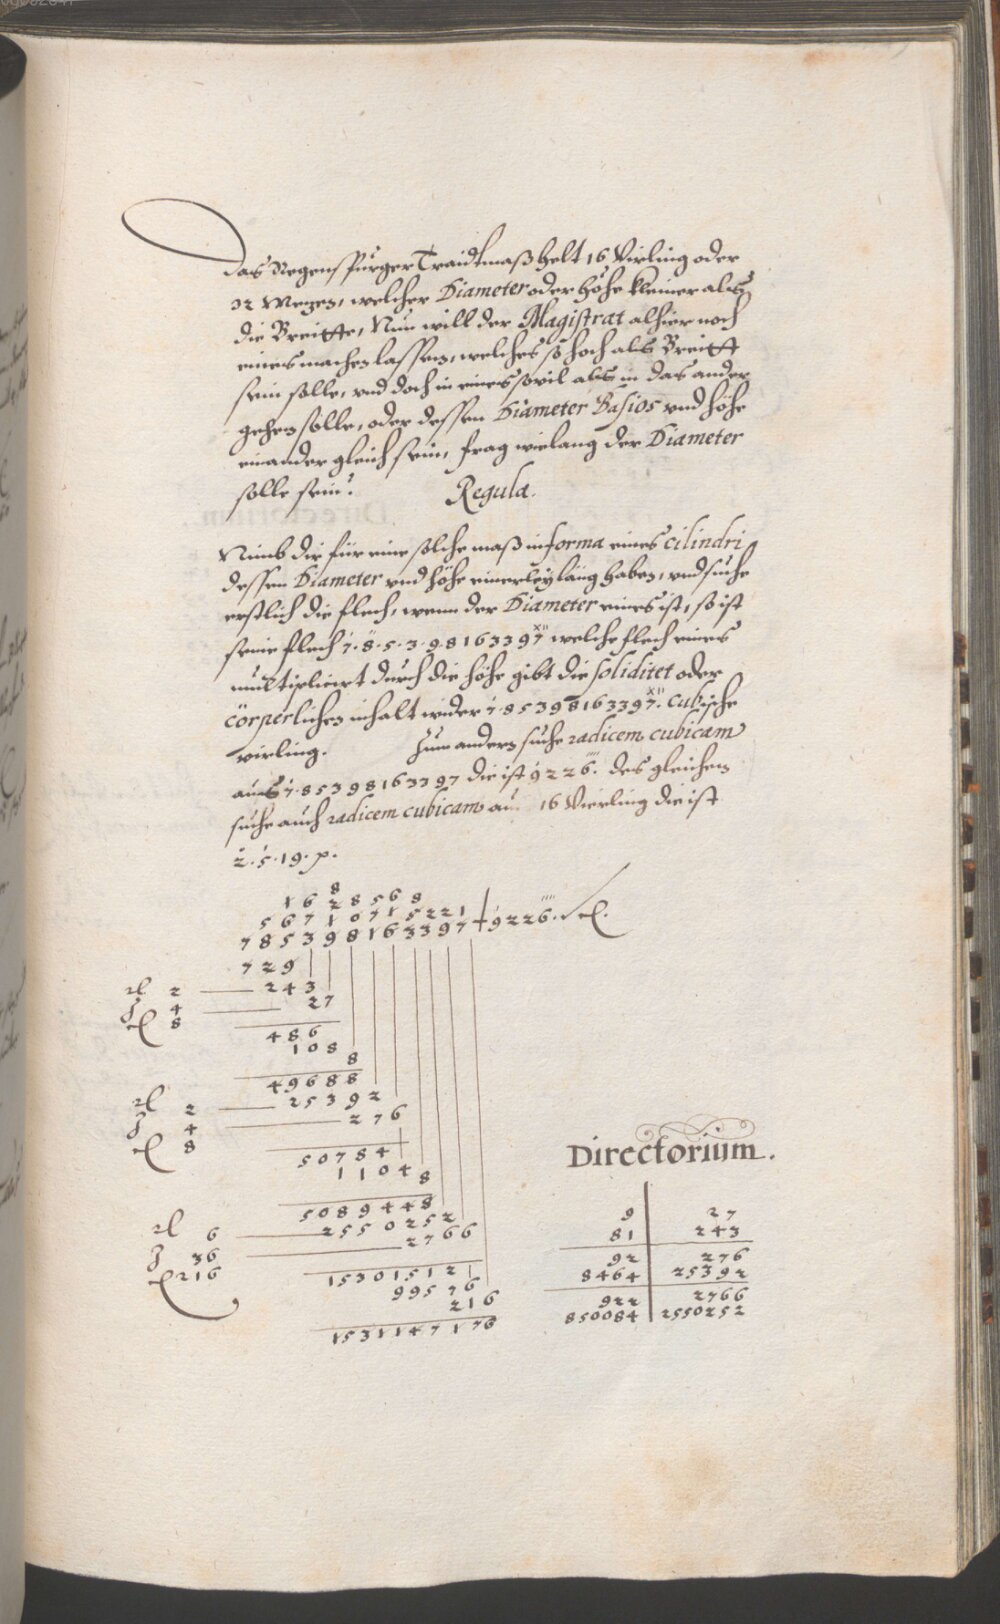 Das Regenspürger Traidtmaß helt 16 Vierling oder
32 Mezen, welcher Diameter oder höhe kleiner als
die Breitte, Nun will der Magistrat alhier noch
eines machen lassen, welches so hoch als Breitt
sein solle, und doch in eines sovil als in das ander
gehen solle, oder dessen Diameter Basios und höhe
einander gleich sein, frag wielang der Diameter
solle sein?
Regula.
Nimb dir für eine solche maß in forma eines cilindri
dessen Diameter und höhe einerley läng haben, und suche
erstlich die flech, wenn der Diameter eines ist, so ist
seine flech 7·8·5·3·9·8163397 welche flech eines
multiplicirt durch die höhe gibt die soliditet oder
cörperlichen inhalt wider 7·853981633 97. cubische
virling. Zum andern suche radicem cubicam
aus 7·85398163397 die ist 9226. des gleichen
suche auch radicem cubicam aus 16 Vierling die ist
2·5·19·p.
8
1 6 2 8 5 6 8
5 6 7 1 0 7 1 5 2 2 1
7 8 5 3 9 8 1 6 3 3 9 7 9226.
7 2 9
2 2 4 3
4 2 7
8
4 8 6
1 0 8
8
4 9 6 8 8
2 2 5 3 9 2
4 2 7 6
8
5 0 7 8 4
1 1 0 4
8
5 0 8 9 4 4 8
6 2 5 5 0 2 5 2
36 2 7 6 6
216
1 5 3 0 1 5 1 2
9 9 5 7 6
2 1 6
1 5 3 1 1 4 7 1 7 6
Directorium.
9 27
81 243
92 276
8464 25392
922 2766
850084 2550252